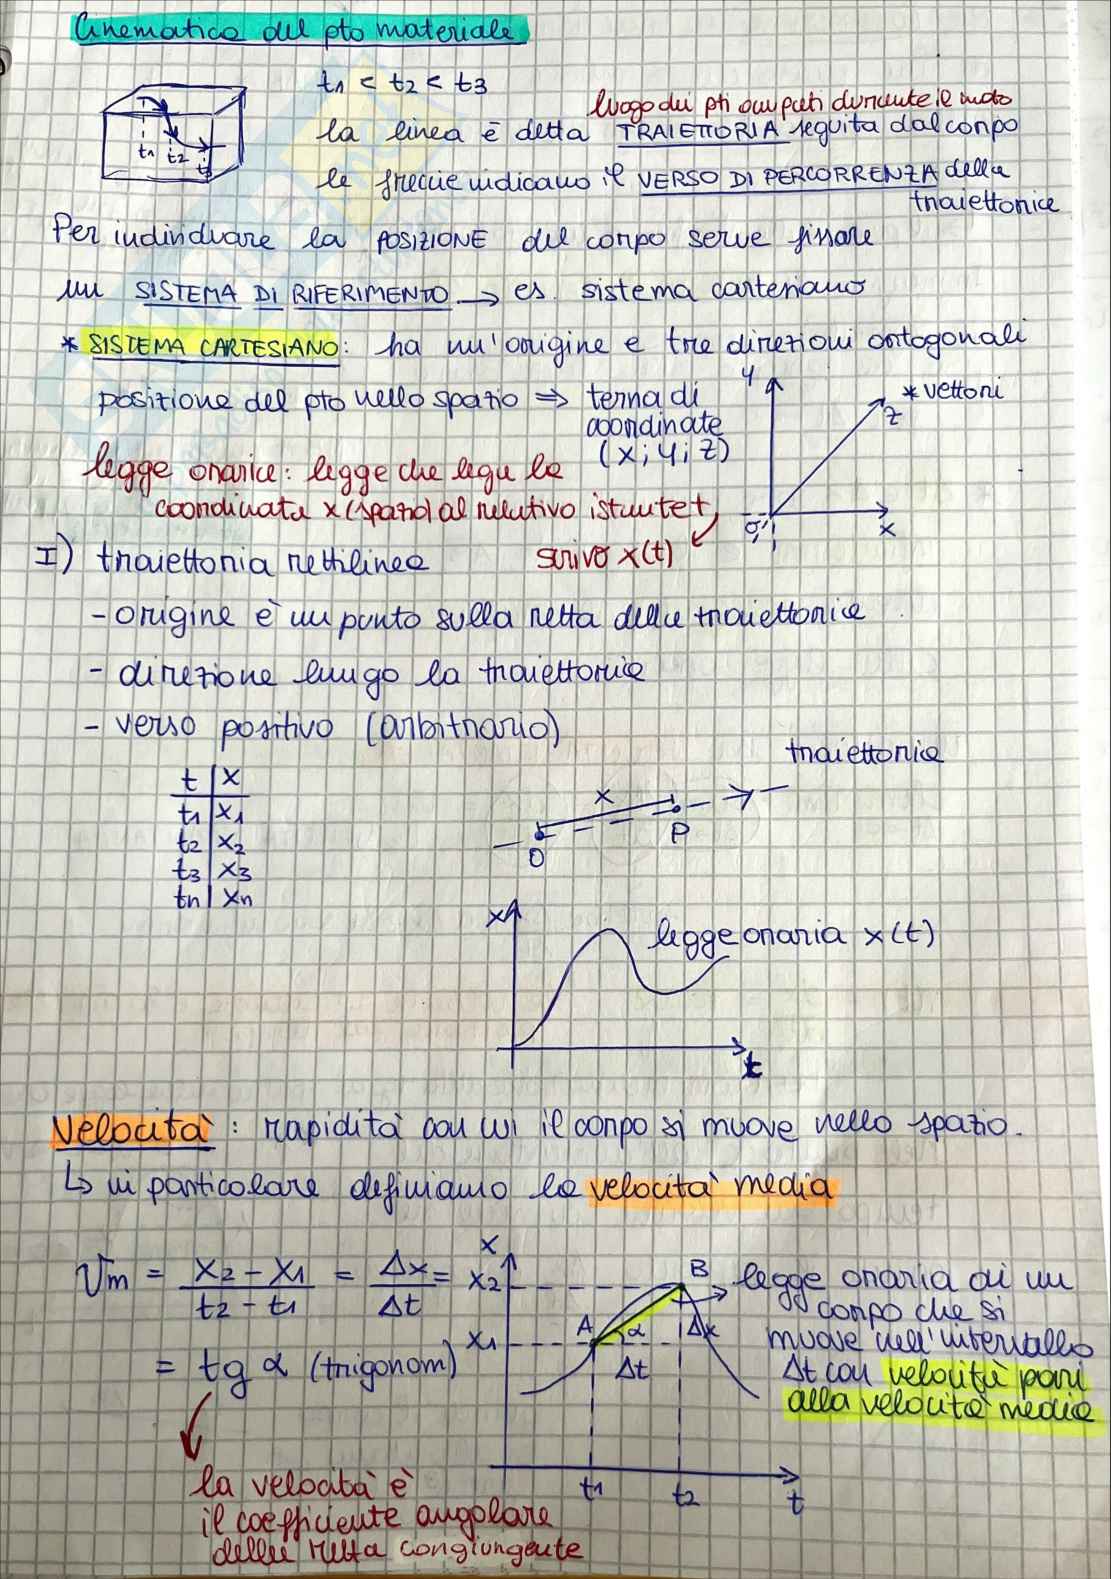 Cinematica del pto materiale
t1 < t2 < t3
luogo dei pti occupati durante il moto
la linea è detta TRAIETTORIA seguita dal corpo
t1 t2 t3
le frecce indicano il VERSO DI PERCORRENZA della
traiettoria
Per individuare la POSIZIONE del corpo serve fissare
un SISTEMA DI RIFERIMENTO → es. sistema cartesiano
* SISTEMA CARTESIANO: ha un'origine e tre direzioni ortogonali
posizione del pto nello spazio ⇒ terna di
coordinate
(x; y; z)
y
* vettori
z
x
O
legge oraria: legge che lega la
coordinata x (spazio) al relativo istante t
scrivo x(t)
I) traiettoria rettilinea
- origine è un punto sulla retta della traiettoria
- direzione lungo la traiettoria
- verso positivo (arbitrario)
t | x
t1 | x1
t2 | x2
t3 | x3
tn | xn
traiettoria
x
O
P
x
legge oraria x(t)
t
Velocità: rapidità con cui il corpo si muove nello spazio.
↳ in particolare definiamo la velocità media
Vm = x2 - x1 / t2 - t1 = Δx / Δt =
= tg α (trigonom)
la velocità è
il coefficiente angolare
della retta congiungente
x
x2
x1
A
B
α
Δx
Δt
t1
t2
t
legge oraria di un
corpo che si
muove nell'intervallo
Δt con velocità pari
alla velocità media